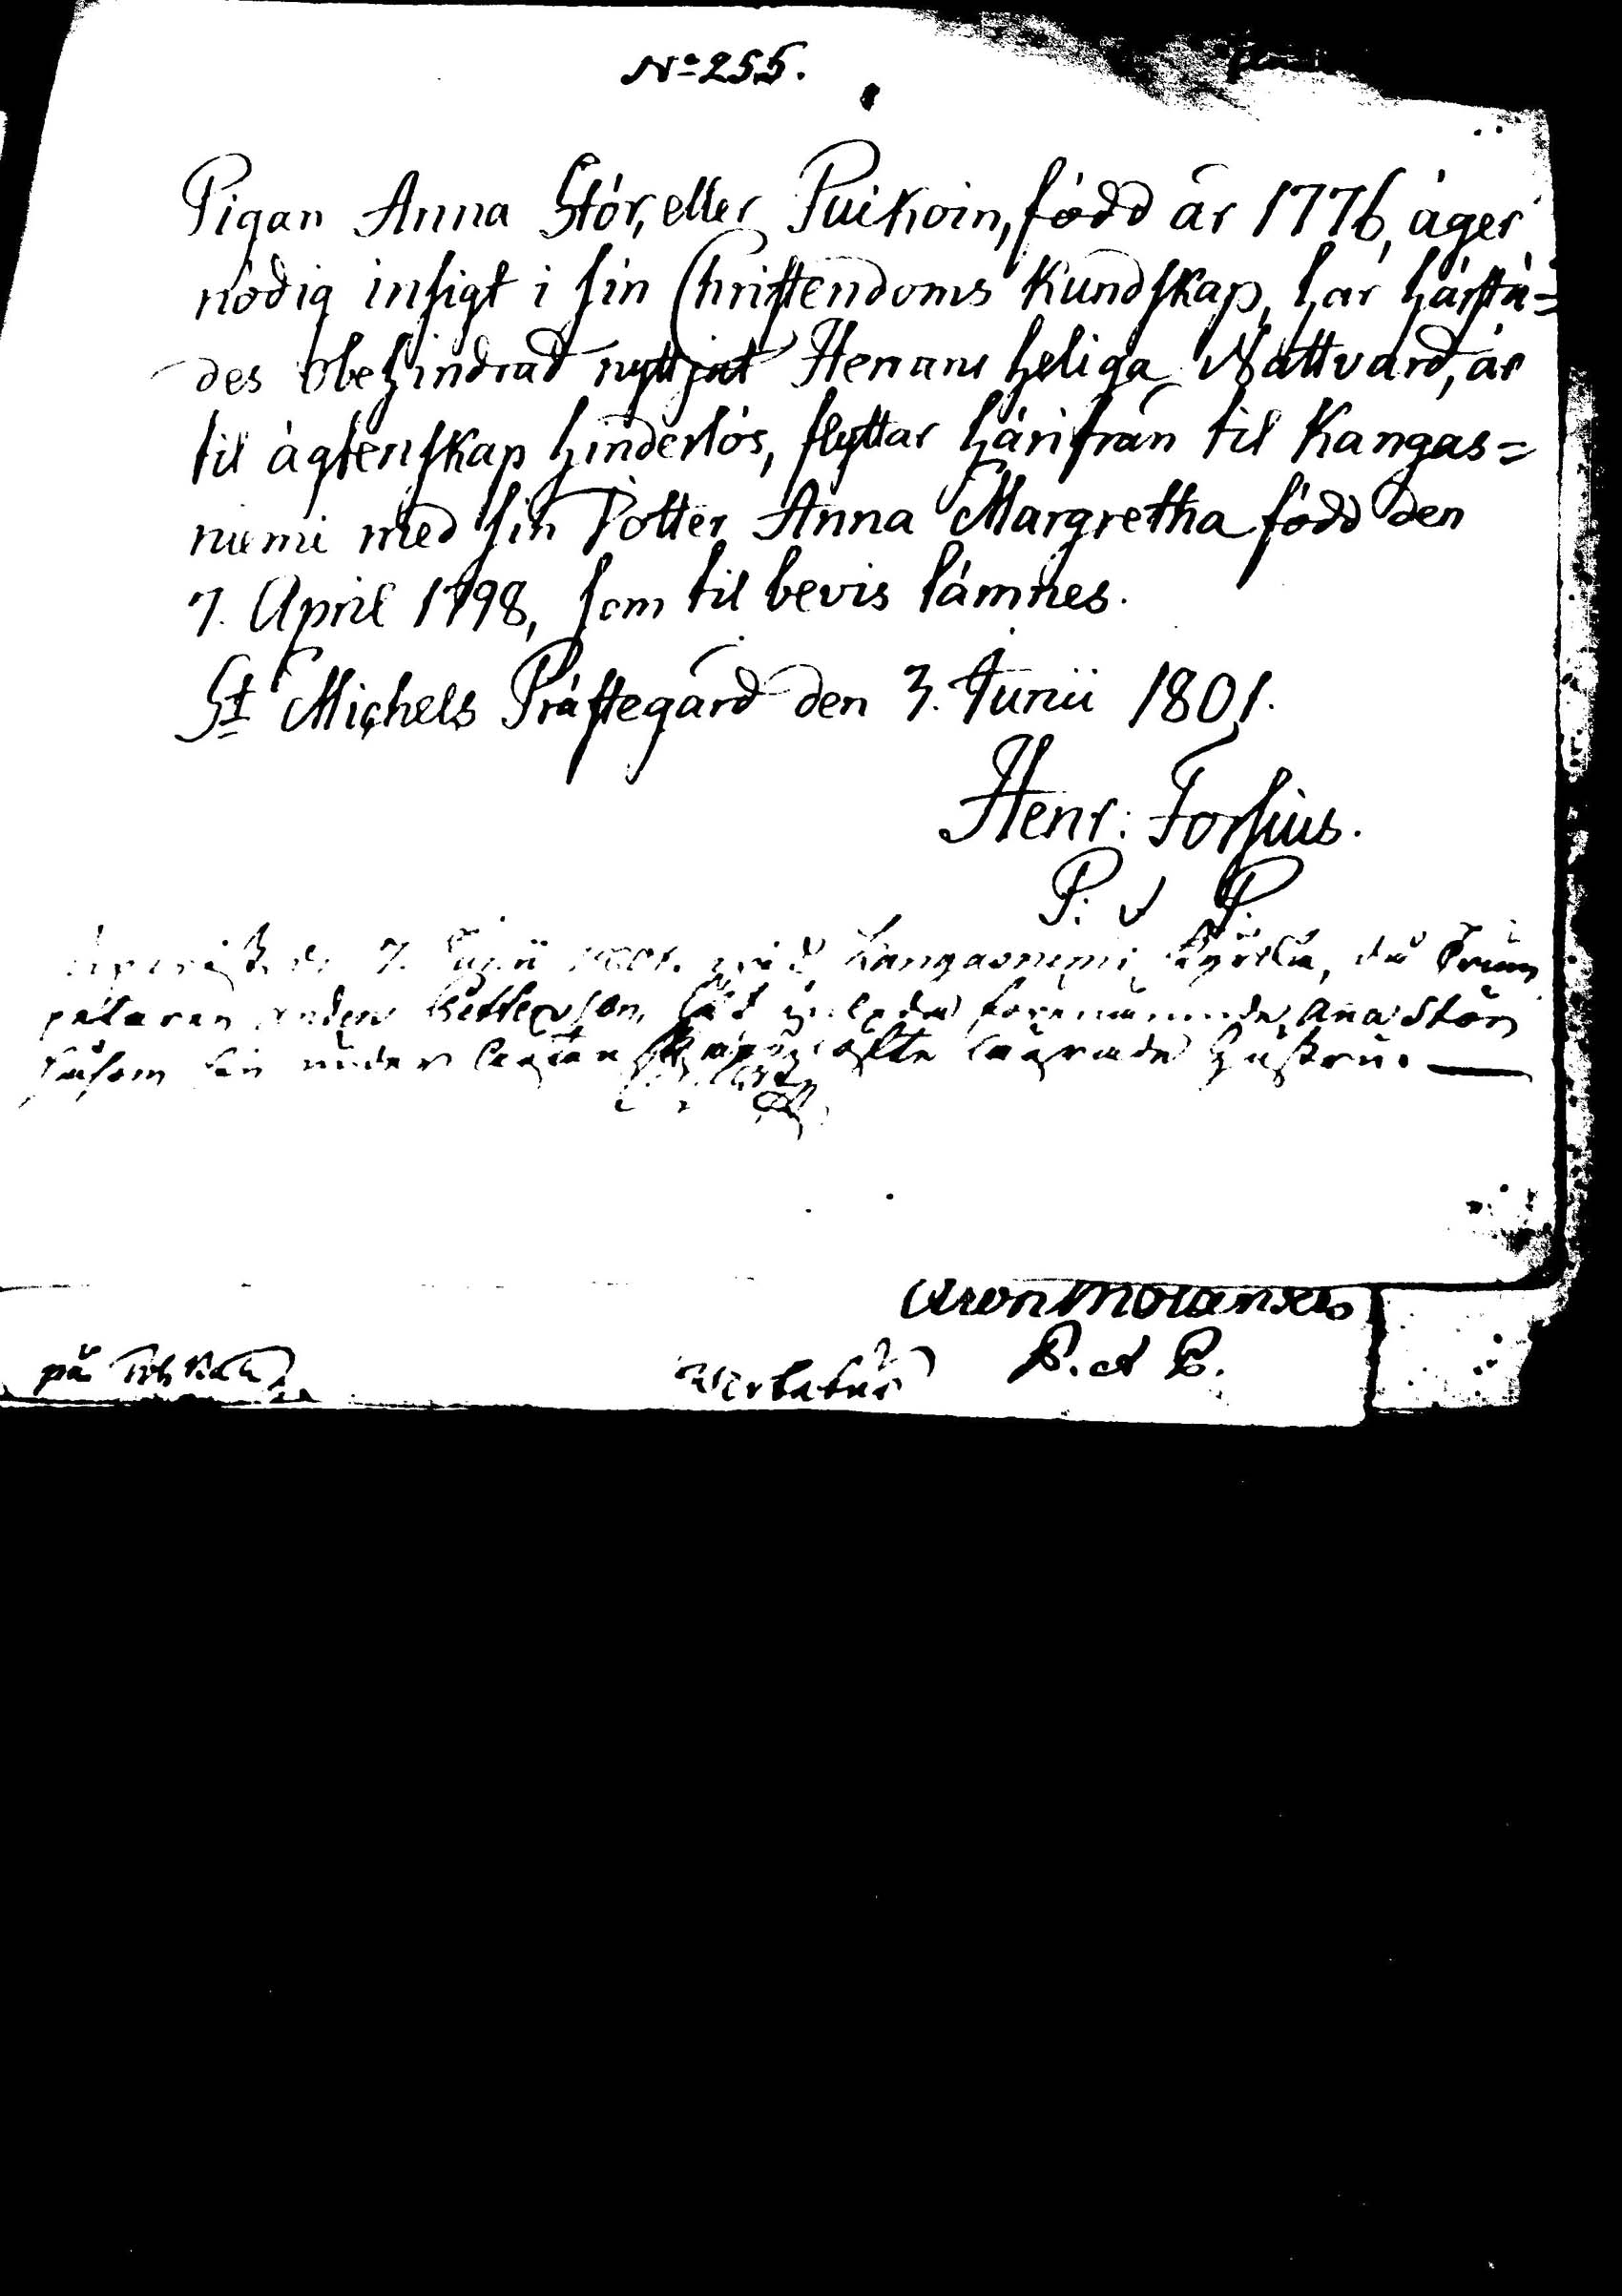 No 255.
Pigan Anna Stör, eller Puikoin, född år 1776, äger
nödig insigt i sin Christendoms Kundskap, har härstä=
des obehindrad nyttjat Herrans heliga Nattvard, är
til ägtenskap hinderlös, flyttar härifrån til Kangas=
niemi med sin Dotter Anna Margretha född den
7. April 1798, som til bevis lämnes.
St Michels Prästegård den 3. Junii 1801.
Henr: Forsius.
P: v P.
7. Junii 1801. wid Kangasniemi Kyrka, då Trum
petaren lät förenämnde Anna Stör
såsom sin under ägtenskaps löfte hustru. —
Aron Molander
P. et P.
på